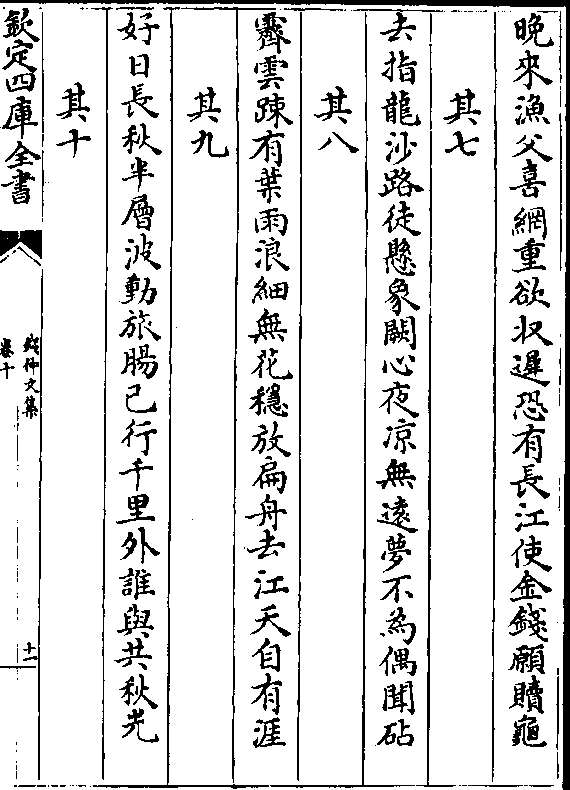 晚來漁父喜網重欲收遲恐有長江使金錢願贖龜
其七
去指龍沙路徒懸象闕心夜凉無遠夢不為偶聞砧
其八
霽雲踈有葉雨浪細無花穩放扁舟去江天自有涯
其九
好日長秋半層波動旅腸已行千里外誰與共秋光
其十
欽定四庫全書
錢仲文集
卷十
十一